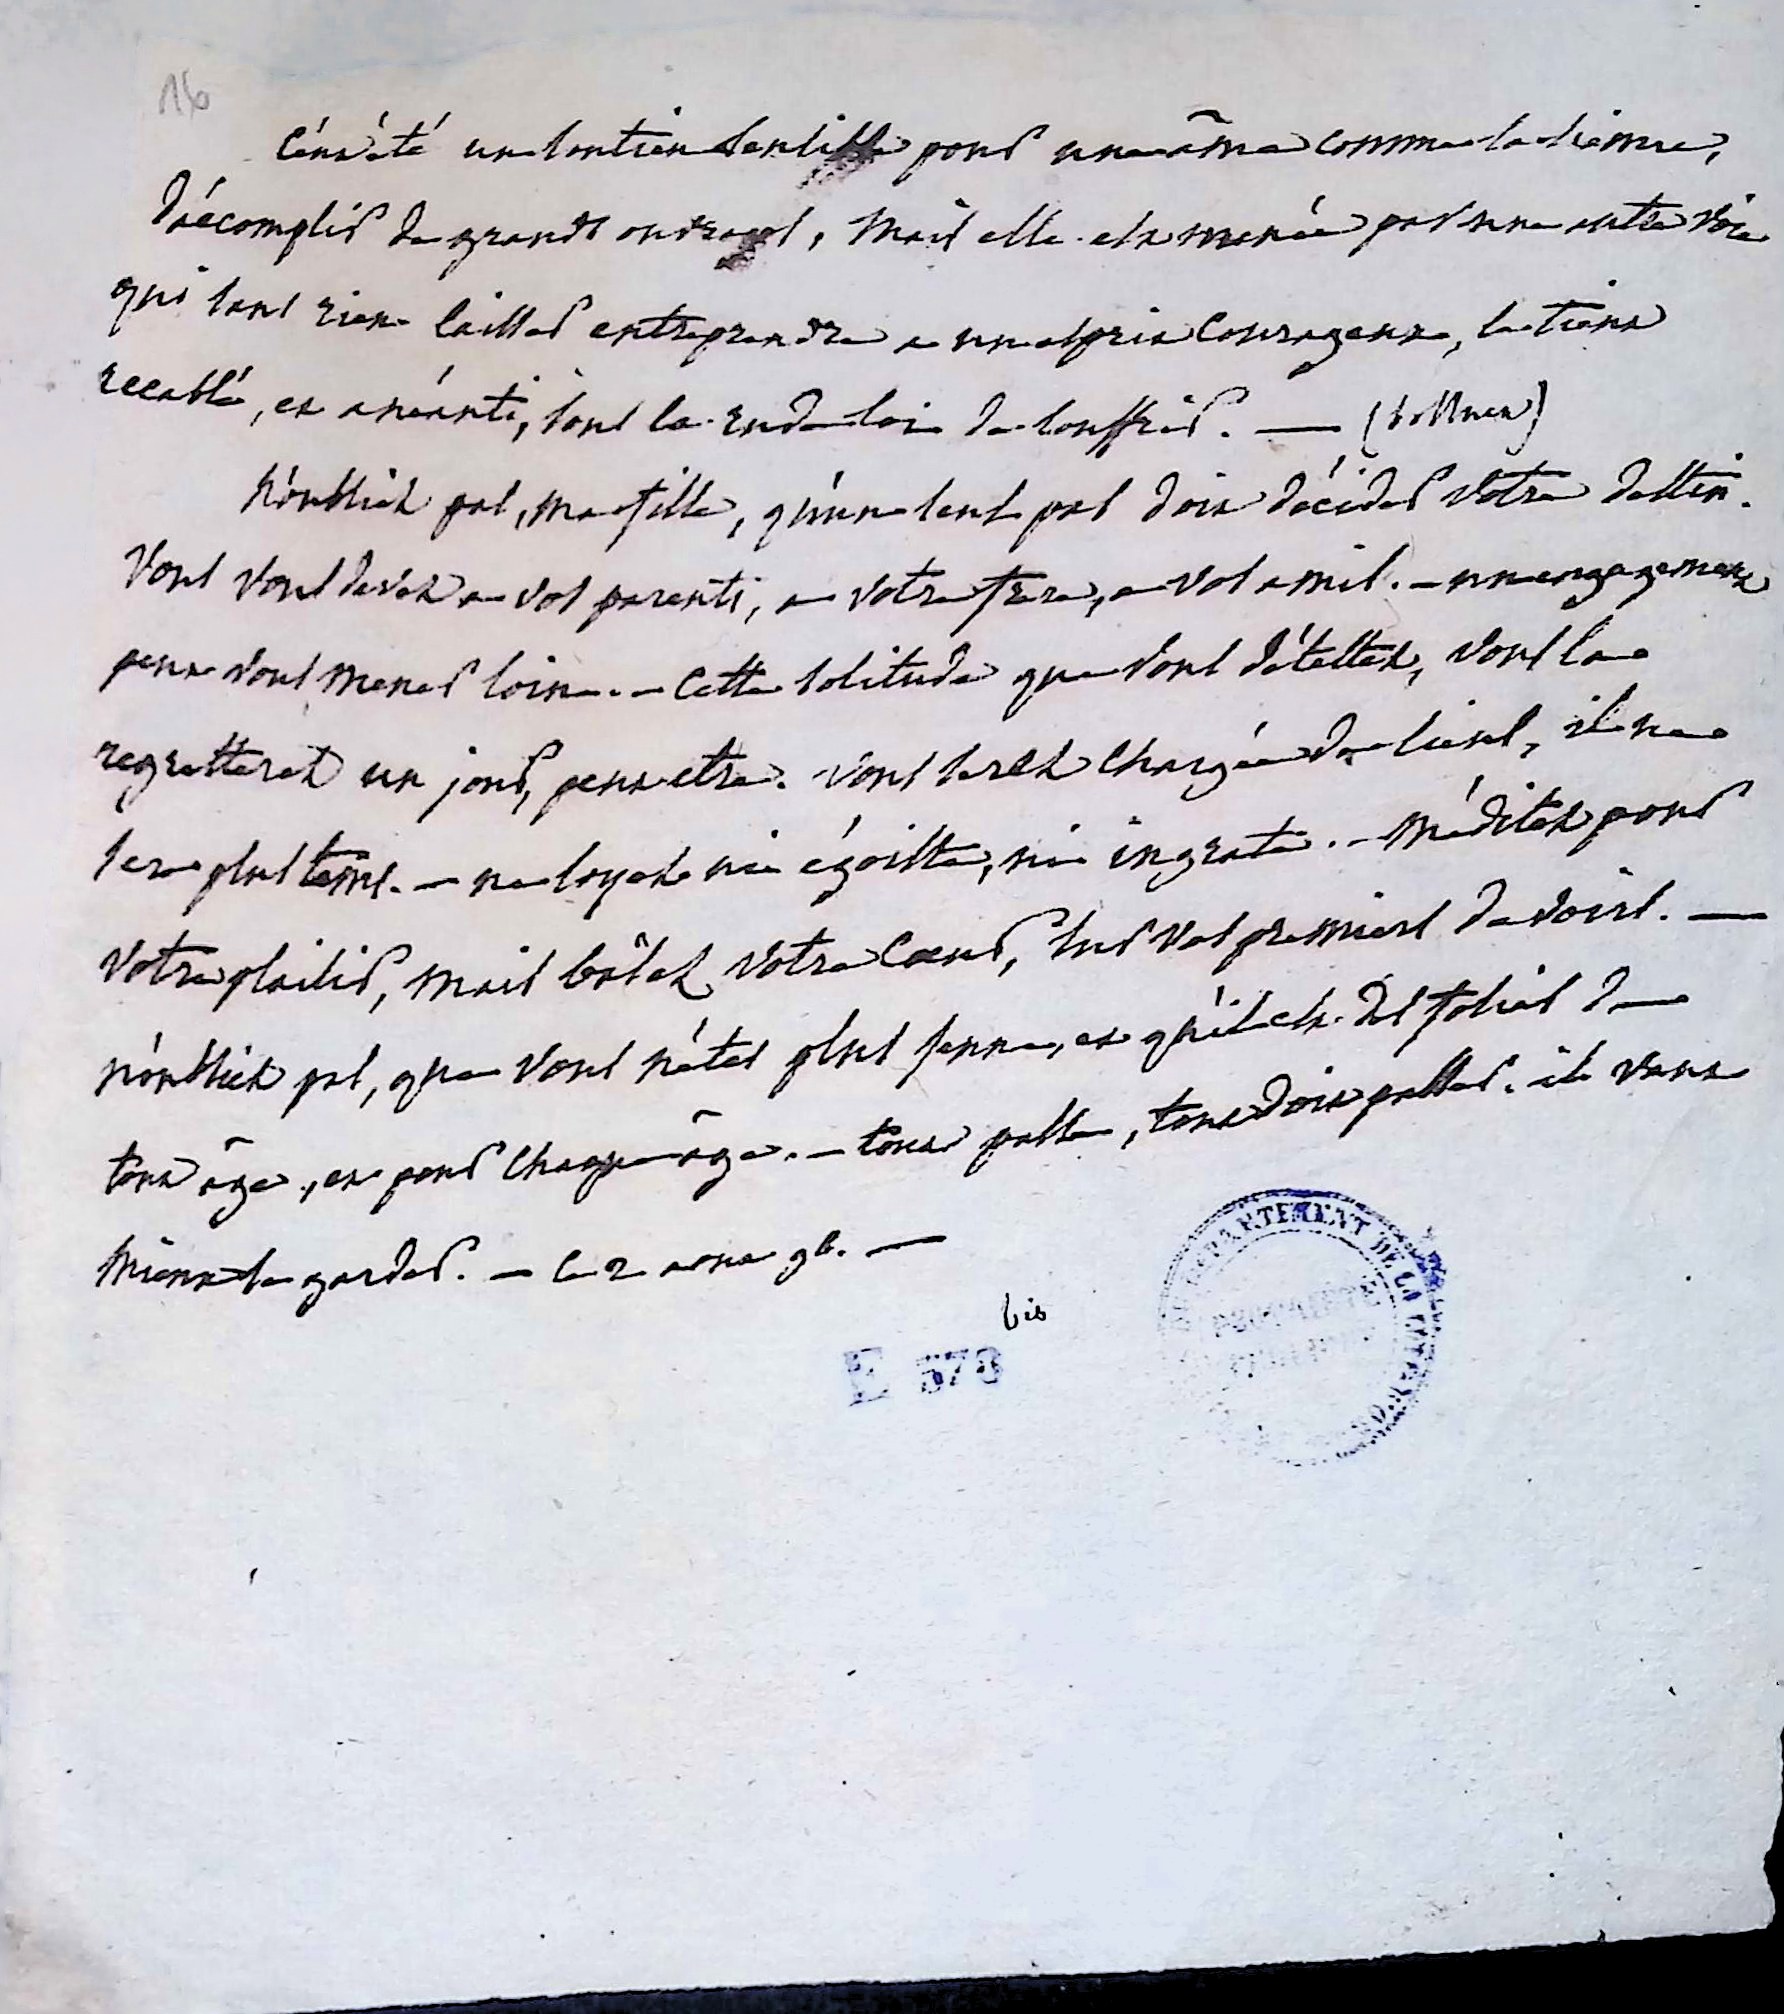 16
C'eut été un soutien sensible pour une âme comme la sienne,
d'accomplir de grands ouvrages, mais elle est menée par une autre voie
qui sans rien laisser entreprendre a un esprit courageux, le tient
accablé, et anéanti, sous la rude loi de souffrir. — (bossuet)
N'oubliez pas, ma fille, qu'un seul pas doit décider votre destin.
Vous vous devez a vos parents, a votre frere, a vos amis. — un engagement
peut vous mener loin. — Cette solitude que vous détestez, vous la
regretterez un jour, peut etre. vous serez chargée de liens, il ne
sera plus tems. — ne soyez ni égoiste, ni ingrate. — Méditez pour
votre plaisir, mais
votre cœur, sur vos premiers devoirs. —
n'oubliez pas, que vous n'êtes plus jeune, et qu'il est des folies de
tout âge, et pour chaque âge. — tout passe, tout doit passer. il vaut
mieux se garder. — le 2 aout 96. —
bis
E 378
DÉPARTEMENT DE LA CÔTE D'OR